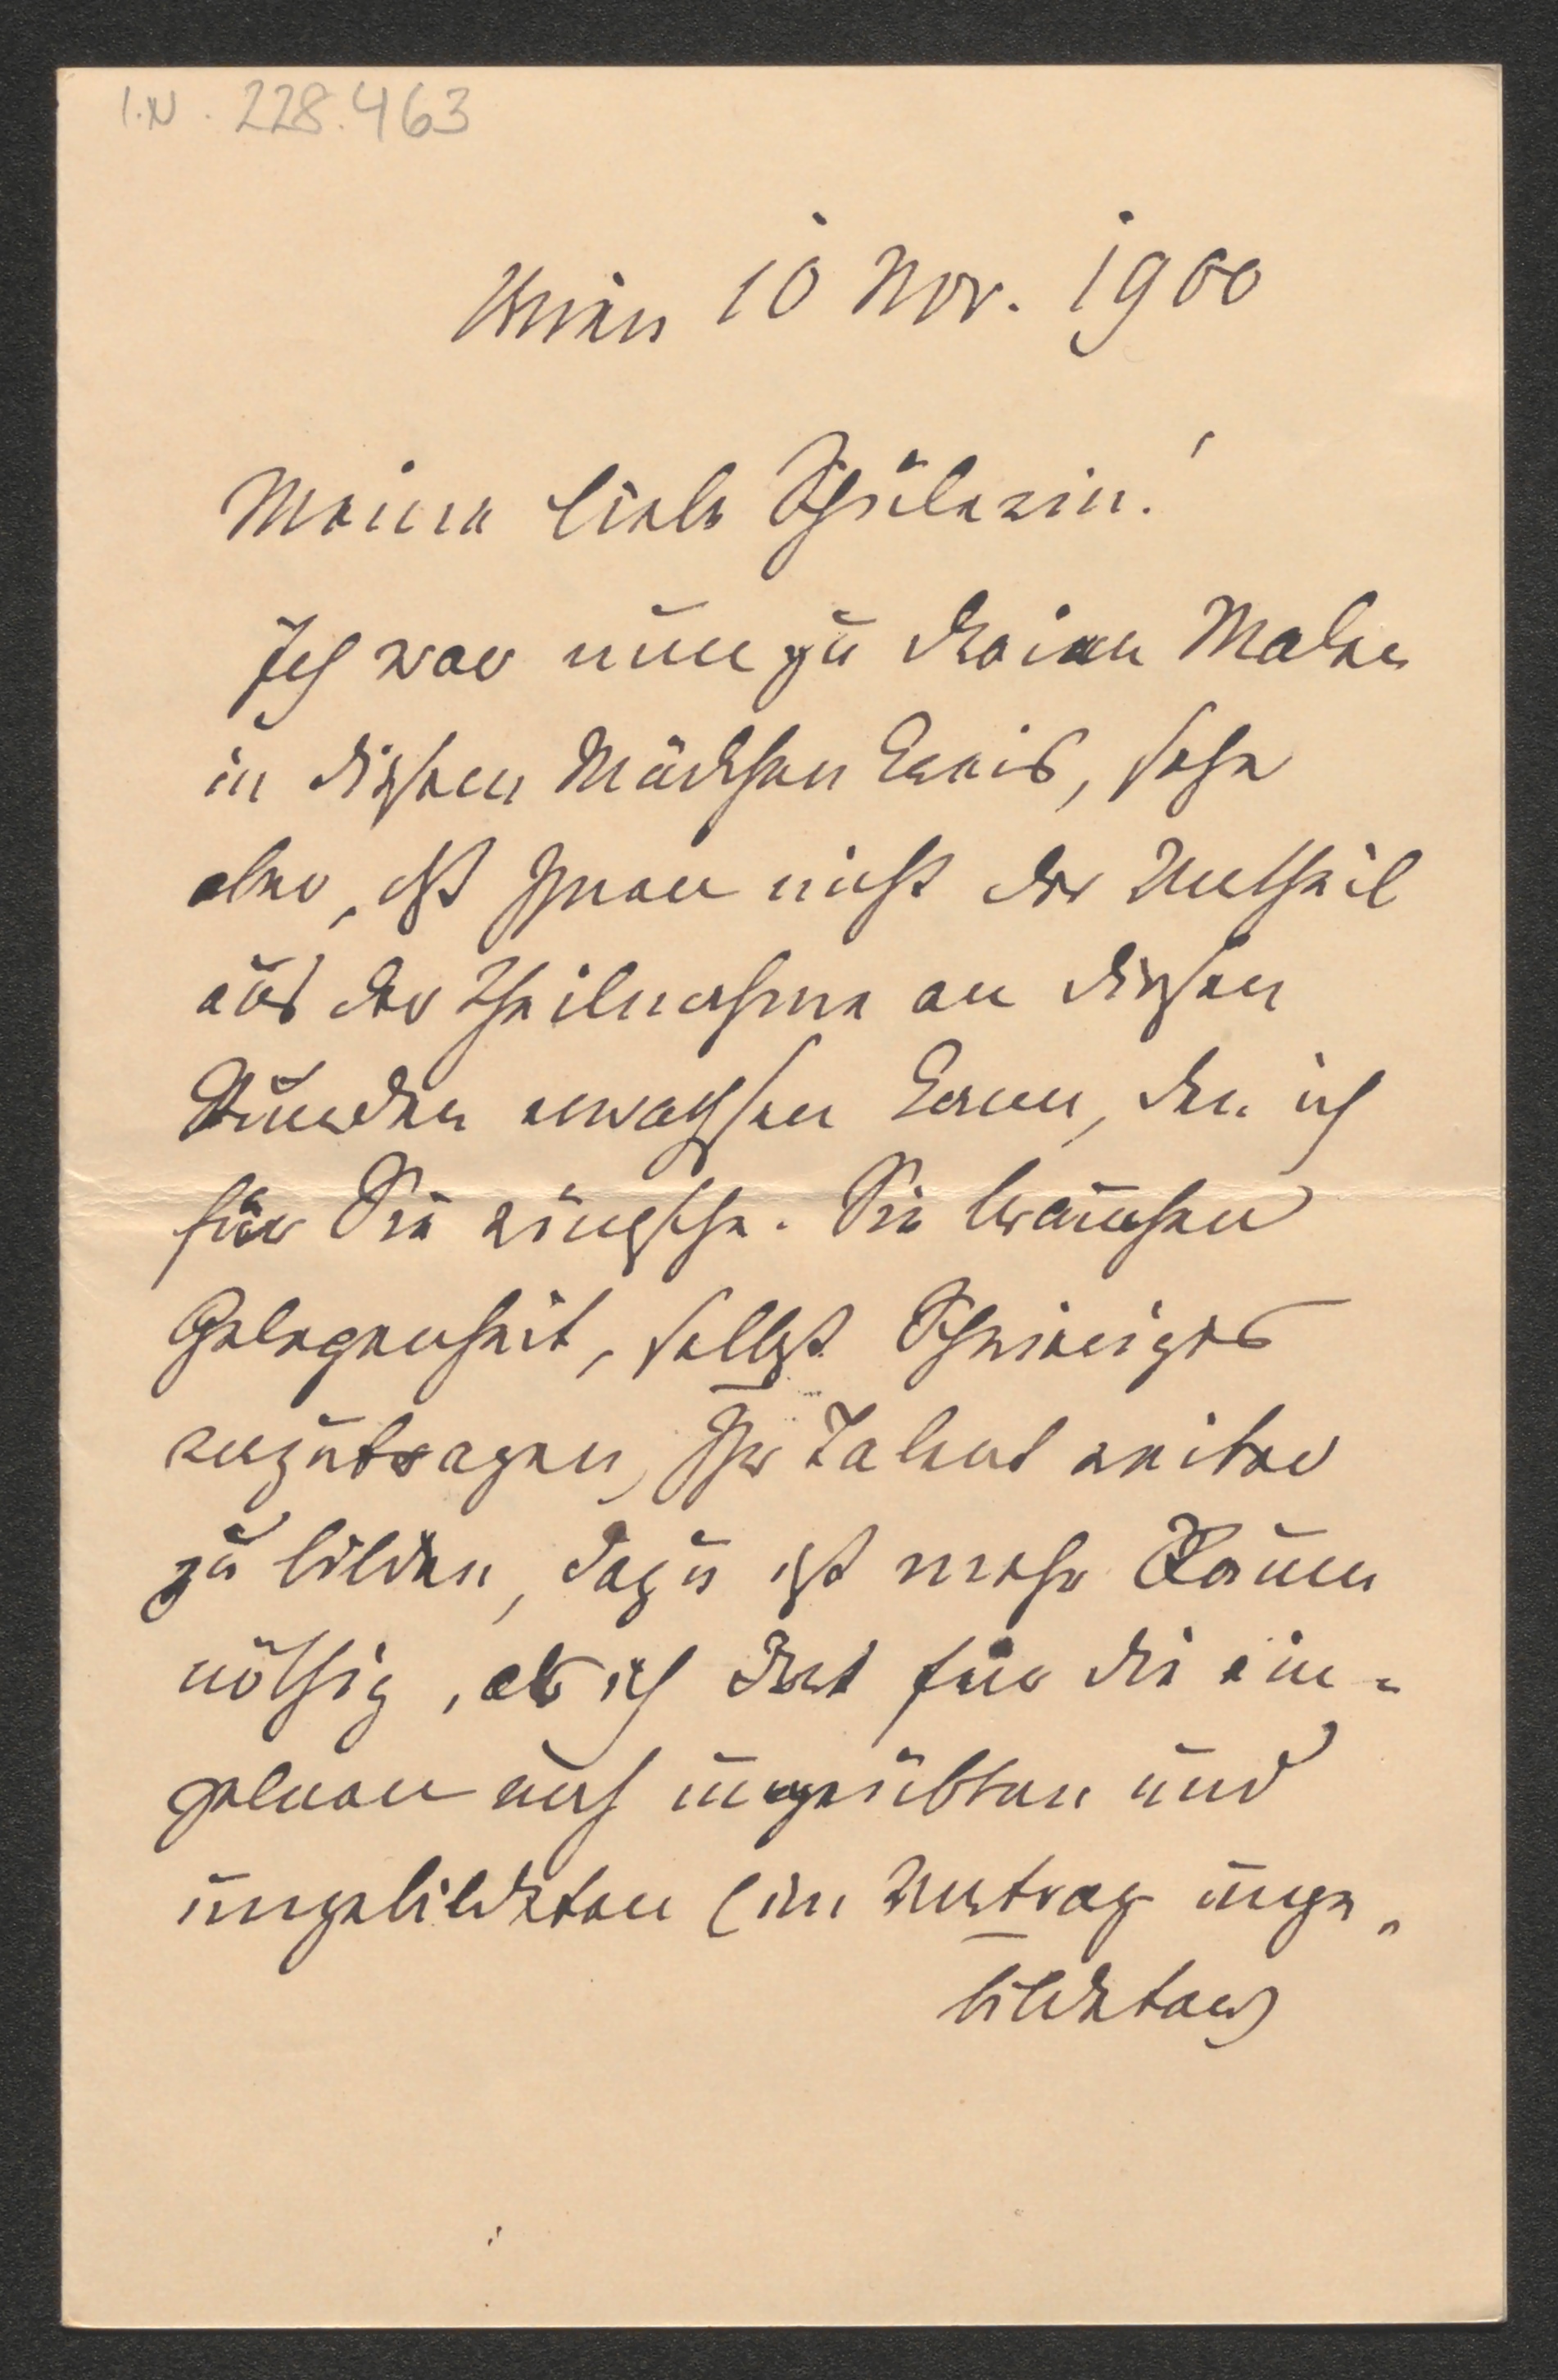 I.N. 228.463
Wien 10 Nov. 1900
Meine liebe Schülerin!
Ich war nun zu dreien Malen
in diesem Mädchen Kreis, sehe
aber, dß Ihnen nicht der Vortheil
aus der Theilnahme an diesen
Stunden erwachsen kann, den ich
für Sie wünsche. Sie brauchen
Gelegenheit, selbst Schwieriges
vorzutragen, Ihr Talent weiter
zu bilden, dazu ist mehr Raum
nöthig, als ich dort für die ein-
zelnen noch ungeübten und
ungebildeten (im Vortrag unge-
bildeten)